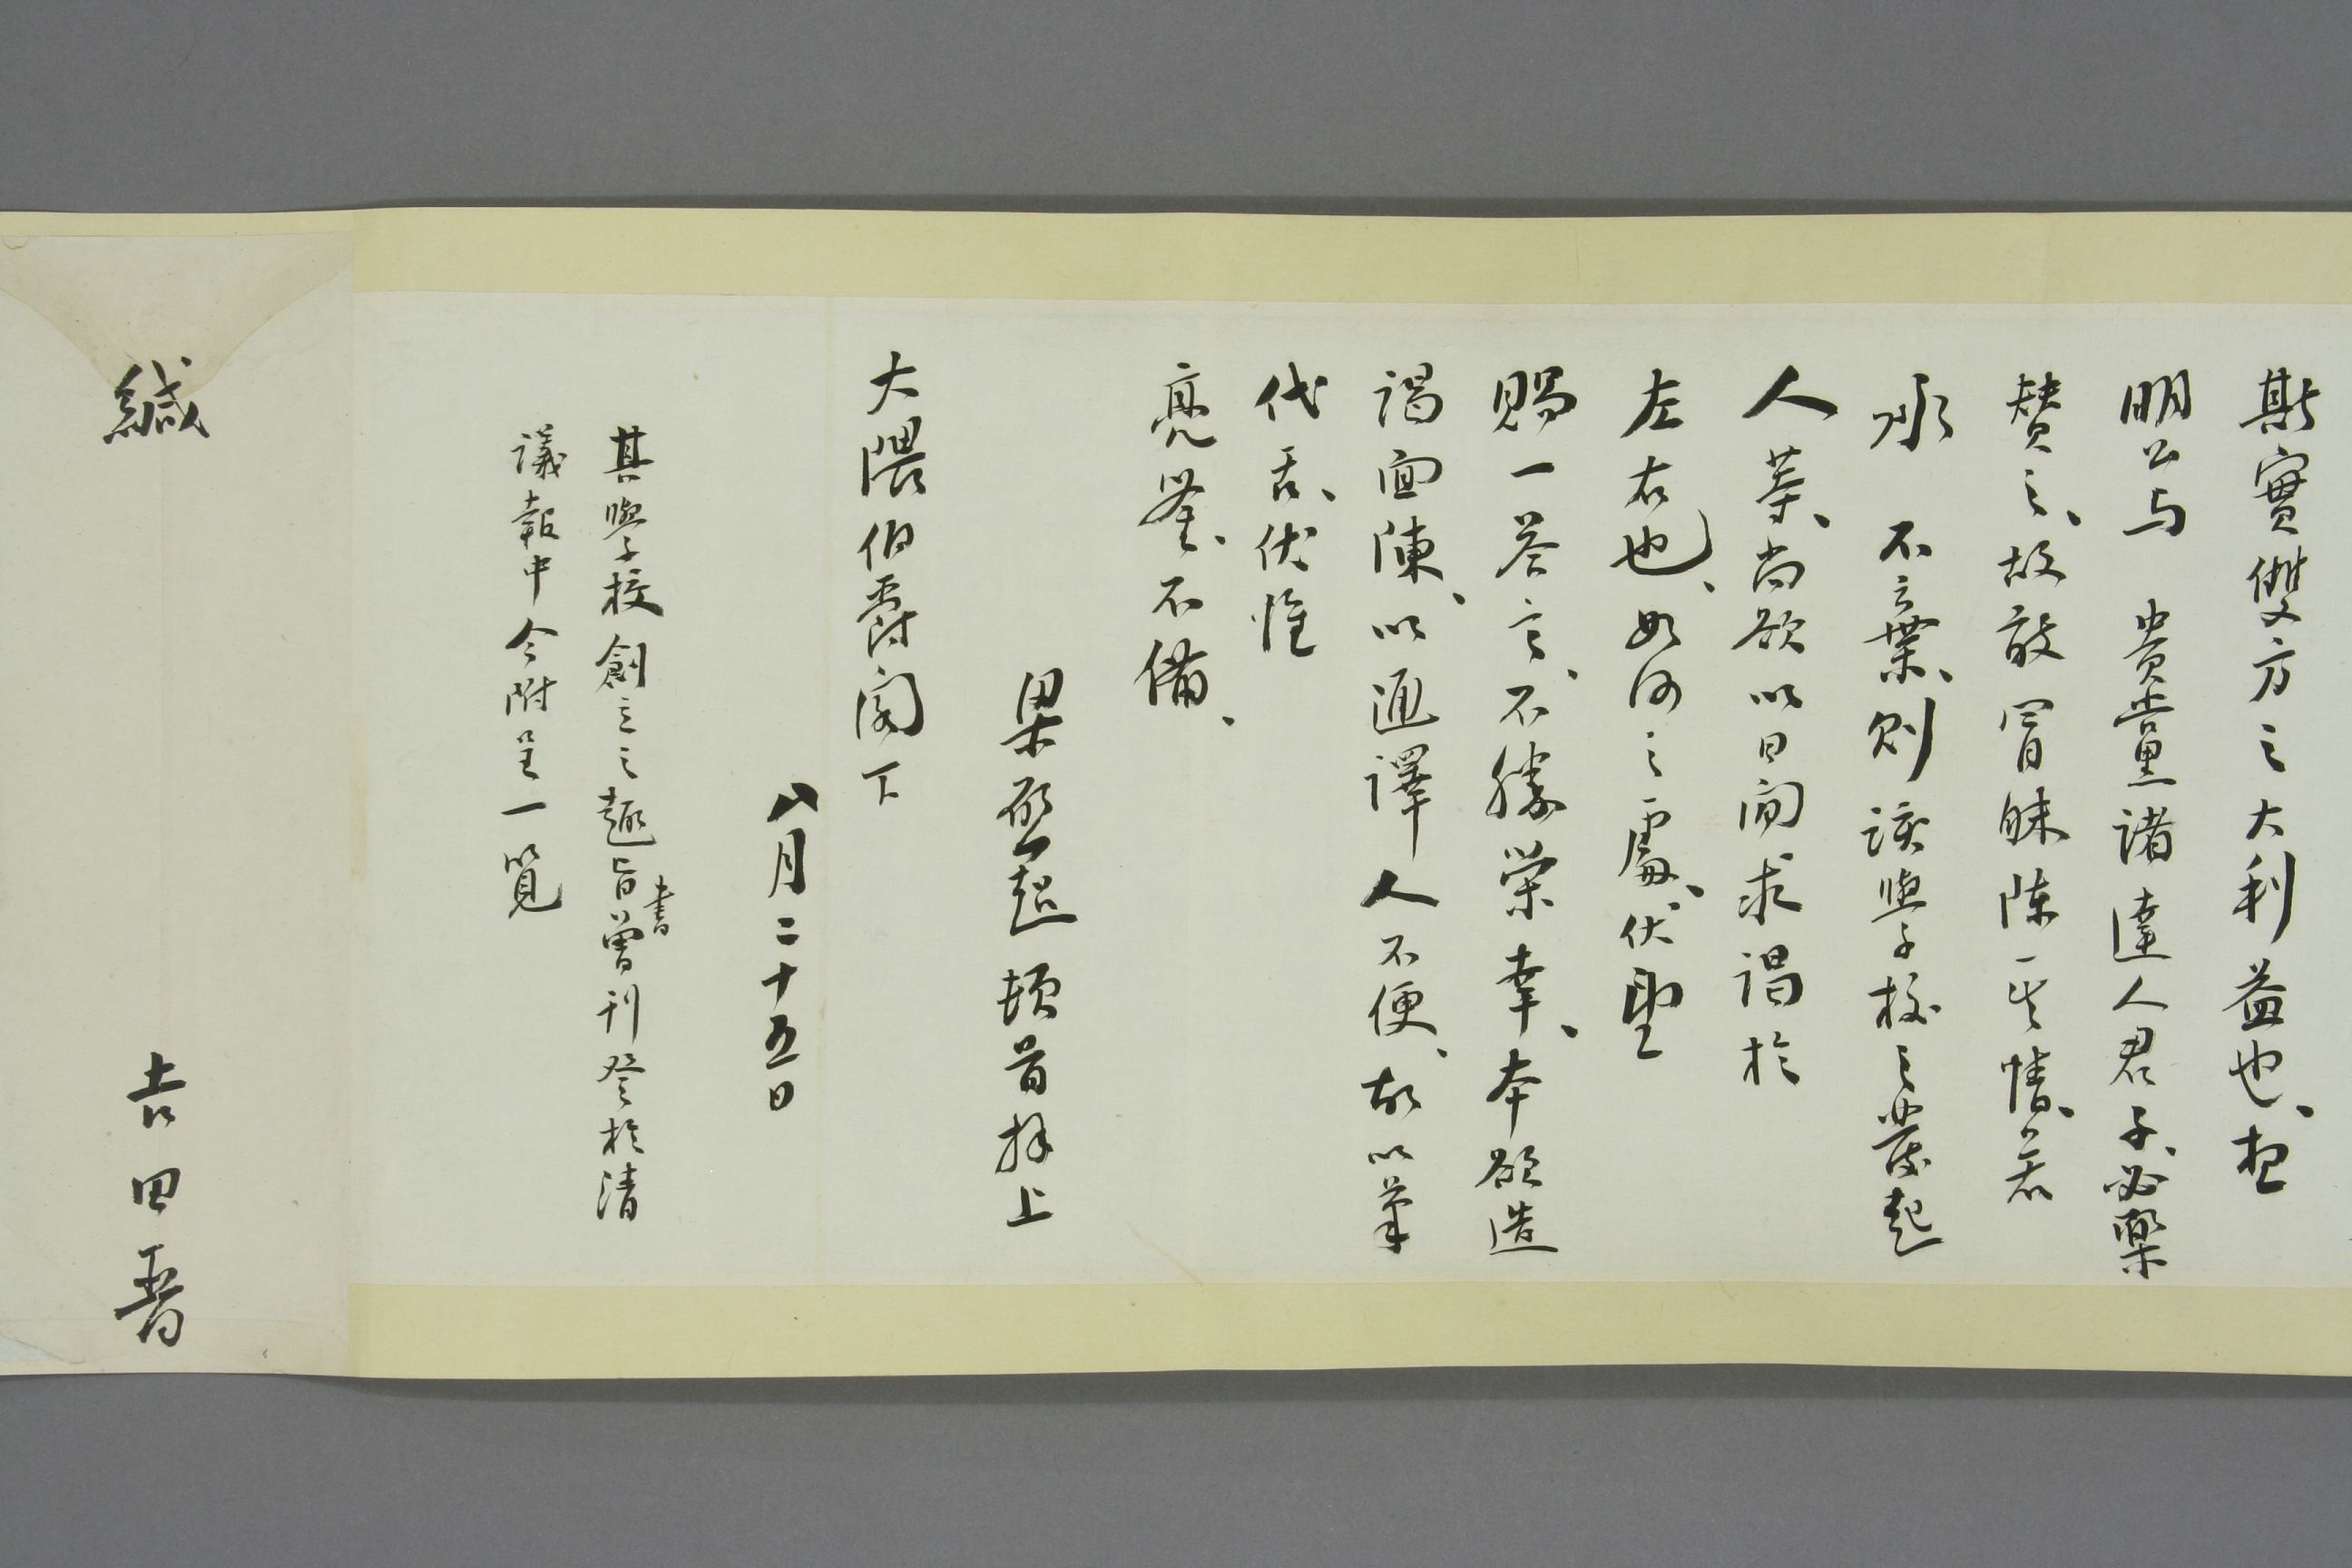 斯實雙方之大利益也、想
明公与 貴黨諸達人君子、必樂
賛之、故敢冒昧陳其情、若
承 不棄、則該學校之發起
人等、尚欲以日間求謁於
左右也、如何之處、伏聖
賜一答言、不勝榮幸、本欲造
謁面陳、以通譯人不便、故以筆
代舌、伏惟
亮鉴、不備、
梁啓超 頓首拜上
大隈伯爵閣下
八月二十五日
其學校創立之趣旨書曾刊登於清
議報中今附呈一覽
緘 吉田晋